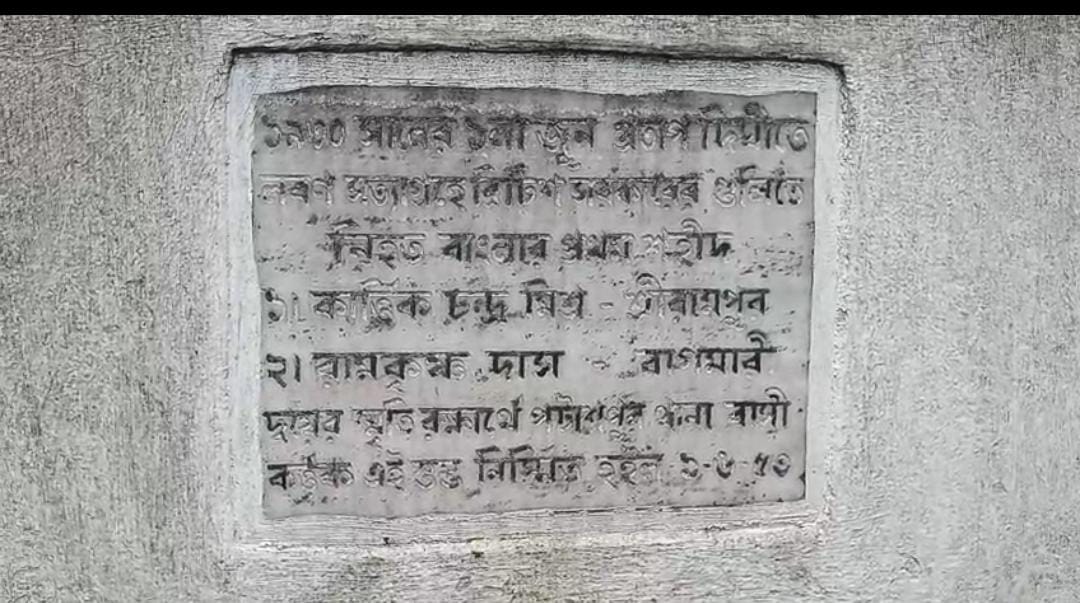 ১৯৩০ সালের ১লা জুন প্রতাপ দিঘীতে
লবণ সত্যাগ্রহে ব্রিটিশ সরকারের গুলিতে
নিহত বাংলার প্রথম শহীদ
১। কার্ত্তিক চন্দ্র মিশ্র - শ্রীরামপুর
২। রামকৃষ্ণ দাস - বাগমারী
দুয়ের স্মৃতি রক্ষার্থে পটাশপুর থানা বাসী
কর্ত্তৃক এই স্তম্ভ নির্ম্মিত হইল